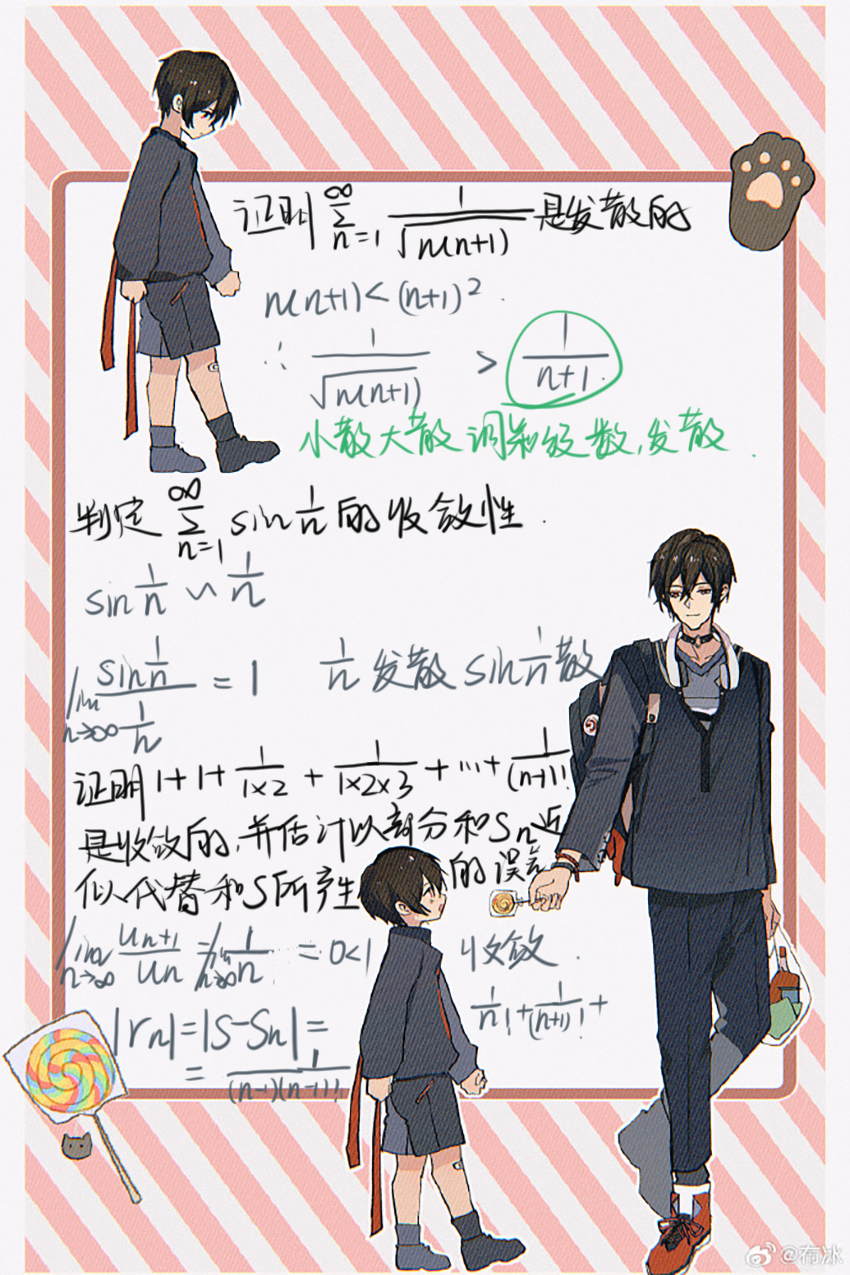 证明 ∞ Σ n=1 1/√n(n+1) 是发散的
n(n+1)<(n+1)².
∴ 1/√n(n+1) > 1/n+1.
小散大散 调和级数,发散.
判定 ∞ Σ n=1 sin 1/n 的收敛性.
sin 1/n ∽ 1/n
lim n→∞ sin 1/n / 1/n = 1 1/n 发散 sin 1/n 散
证明 1+1+ 1/1×2 + 1/1×2×3 +…+ 1/(n-1)!
是收敛的,并估计以部分和Sn近
似代替和S所产生的误差
lim n→∞ Un+1/Un = lim n→∞ 1/n = 0<1 收敛.
|rn|=|S-Sn|= 1/n! + 1/(n+1)! +
= 1/(n-1)(n-1)!
@布冰